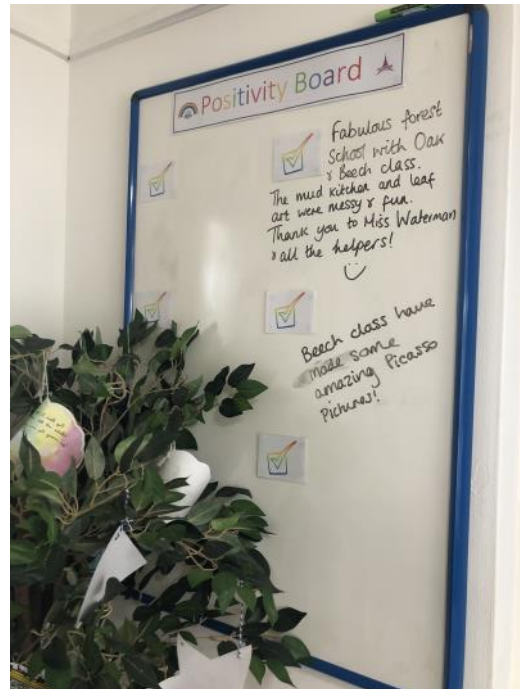 Positivity Board
Fabulous forest
School with Oak
& Beech class.
The mud kitchen and leaf
art were messy & fun.
Thank you to Miss Waterman
& all the helpers!
Beech class have
made some
amazing Picasso
Pictures!